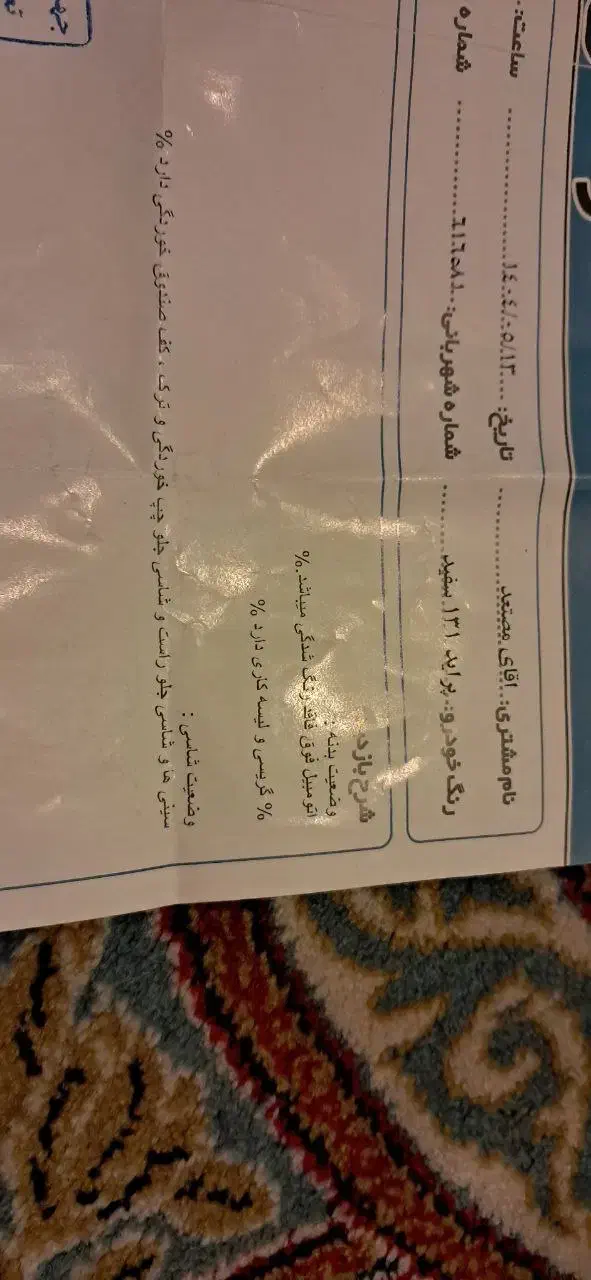 ساعت:
تاریخ: ۱۴۰۴/۰۵/۱۳
نام مشتری: آقای مصنعد
شماره
شماره شهربانی:
رنگ خودرو: پراید ۱۳۱ سفید
شرح بازد
وضعیت بدنه :
اتومبیل فوق فاقد رنگ شدگی میباشد.%
% گریسی و لیسه کاری دارد %
وضعیت شاسی :
سینی ها و شاسی جلو راست و شاسی جلو چپ خوردگی و ترک ، کف صندوق خوردگی دارد %